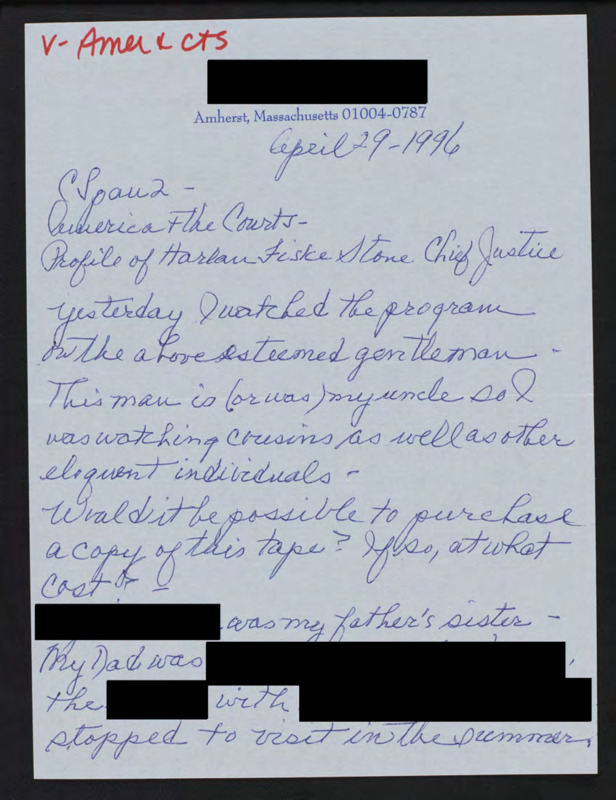 V- Amer & cts
Amherst, Massachusetts 01004-0787
April 29-1996
CSpan 2 -
America & the Courts -
Profile of Harlan Fiske Stone Chief Justice
Yesterday I watched the program
on the above esteemed gentleman -
This man is (or was) my uncle so I
was watching cousins as well as other
eloquent individuals -
Would it be possible to purchase
a copy of this tape? If so, at what
cost? -
was my father's sister -
My Dad was
the with
stopped to visit in the summer.